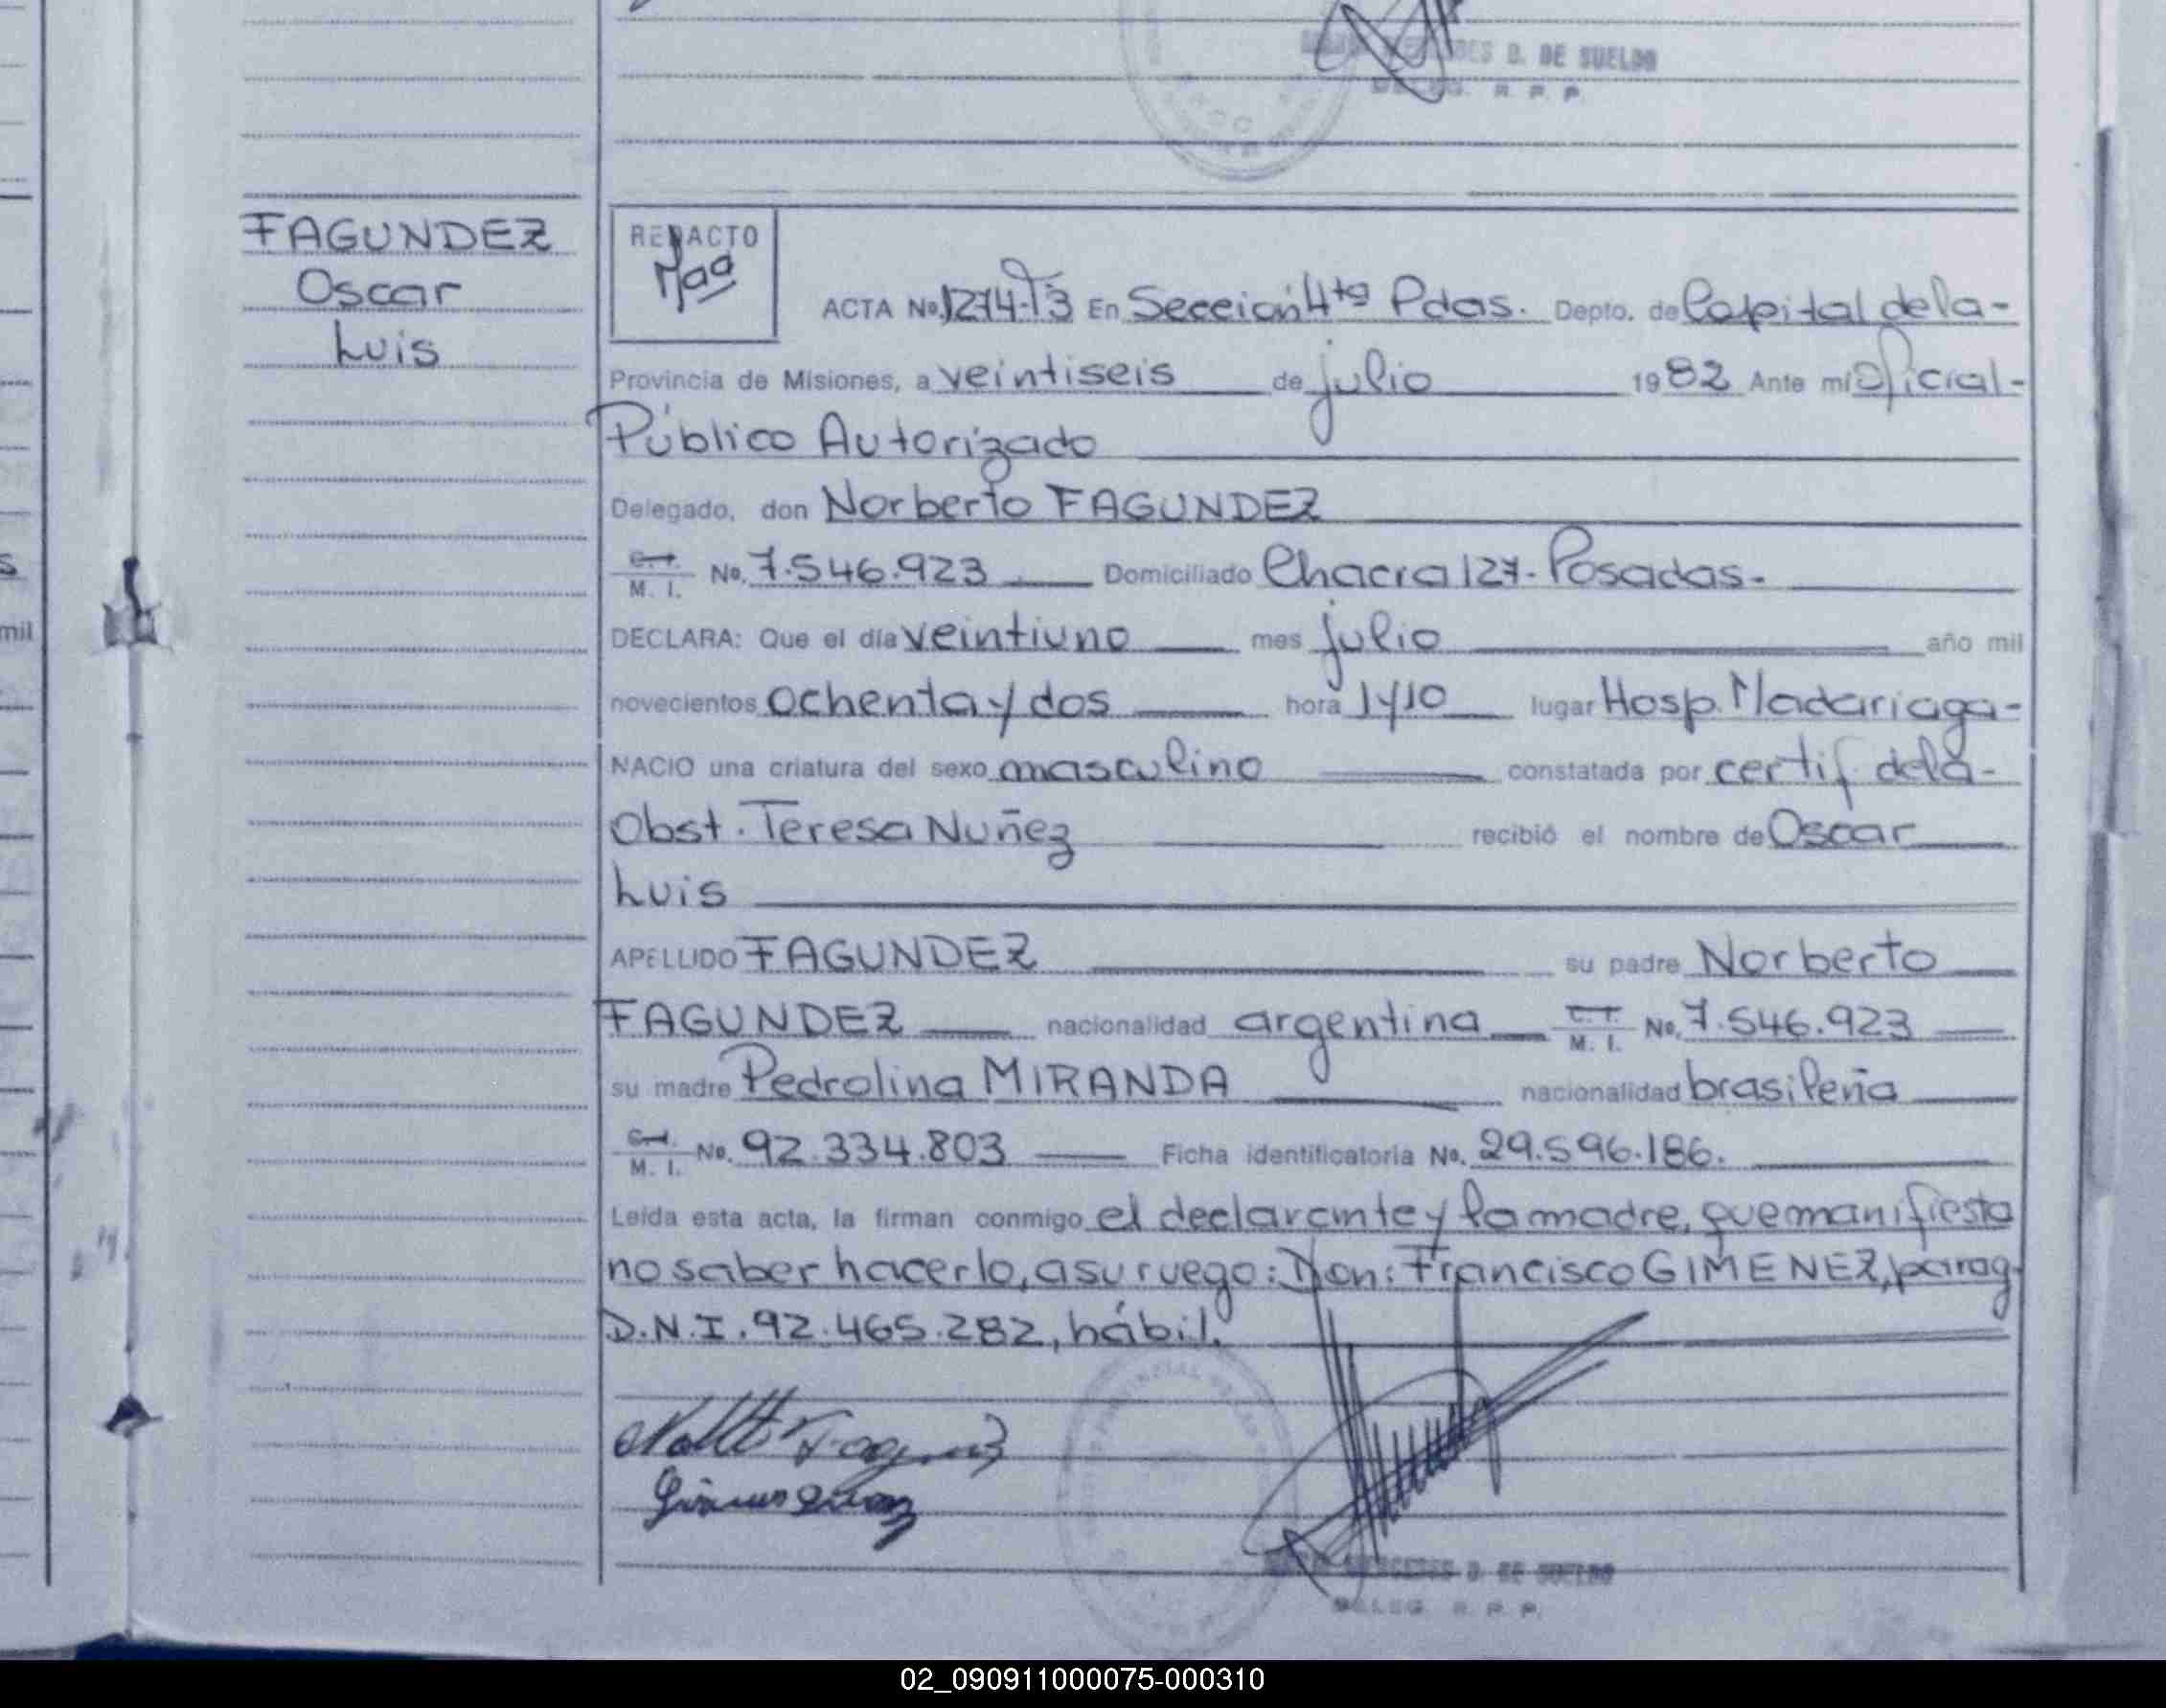 D. DE SUELDO
DELEG. R. P. P.
FAGUNDEZ
Oscar
Luis
REDACTO
ACTA No. 1274-T3 En Sección 4ta Pdas. Depto. de Capital de la-
Provincia de Misiones, a veintiseis de julio 1982 Ante mí Oficial-
Público Autorizado
Delegado, don Norberto FAGUNDEZ
M. I. No. 7.546.923 Domiciliado Chacra 127- Posadas-
DECLARA: Que el día veintiuno mes julio año mil
novecientos ochenta y dos hora 1 y 10 lugar Hosp. Madariaga-
NACIO una criatura del sexo masculino constatada por certif. de la-
Obst. Teresa Nuñez recibió el nombre de Oscar
Luis
APELLIDO FAGUNDEZ su padre Norberto
FAGUNDEZ nacionalidad argentina M. I. No. 7.546.923
su madre Pedrolina MIRANDA nacionalidad brasileña
M. I. No. 92.334.803 Ficha identificatoria No. 29.596.186.
Leída esta acta, la firman conmigo el declarante y la madre, que manifiesta
no saber hacerlo, a su ruego: Don: Francisco GIMENEZ, parag.
D.N.I. 92.465.282, hábil.
MERCEDES D. DE SUELDO
DELEG. R. P. P.
s
mil
02_090911000075-000310